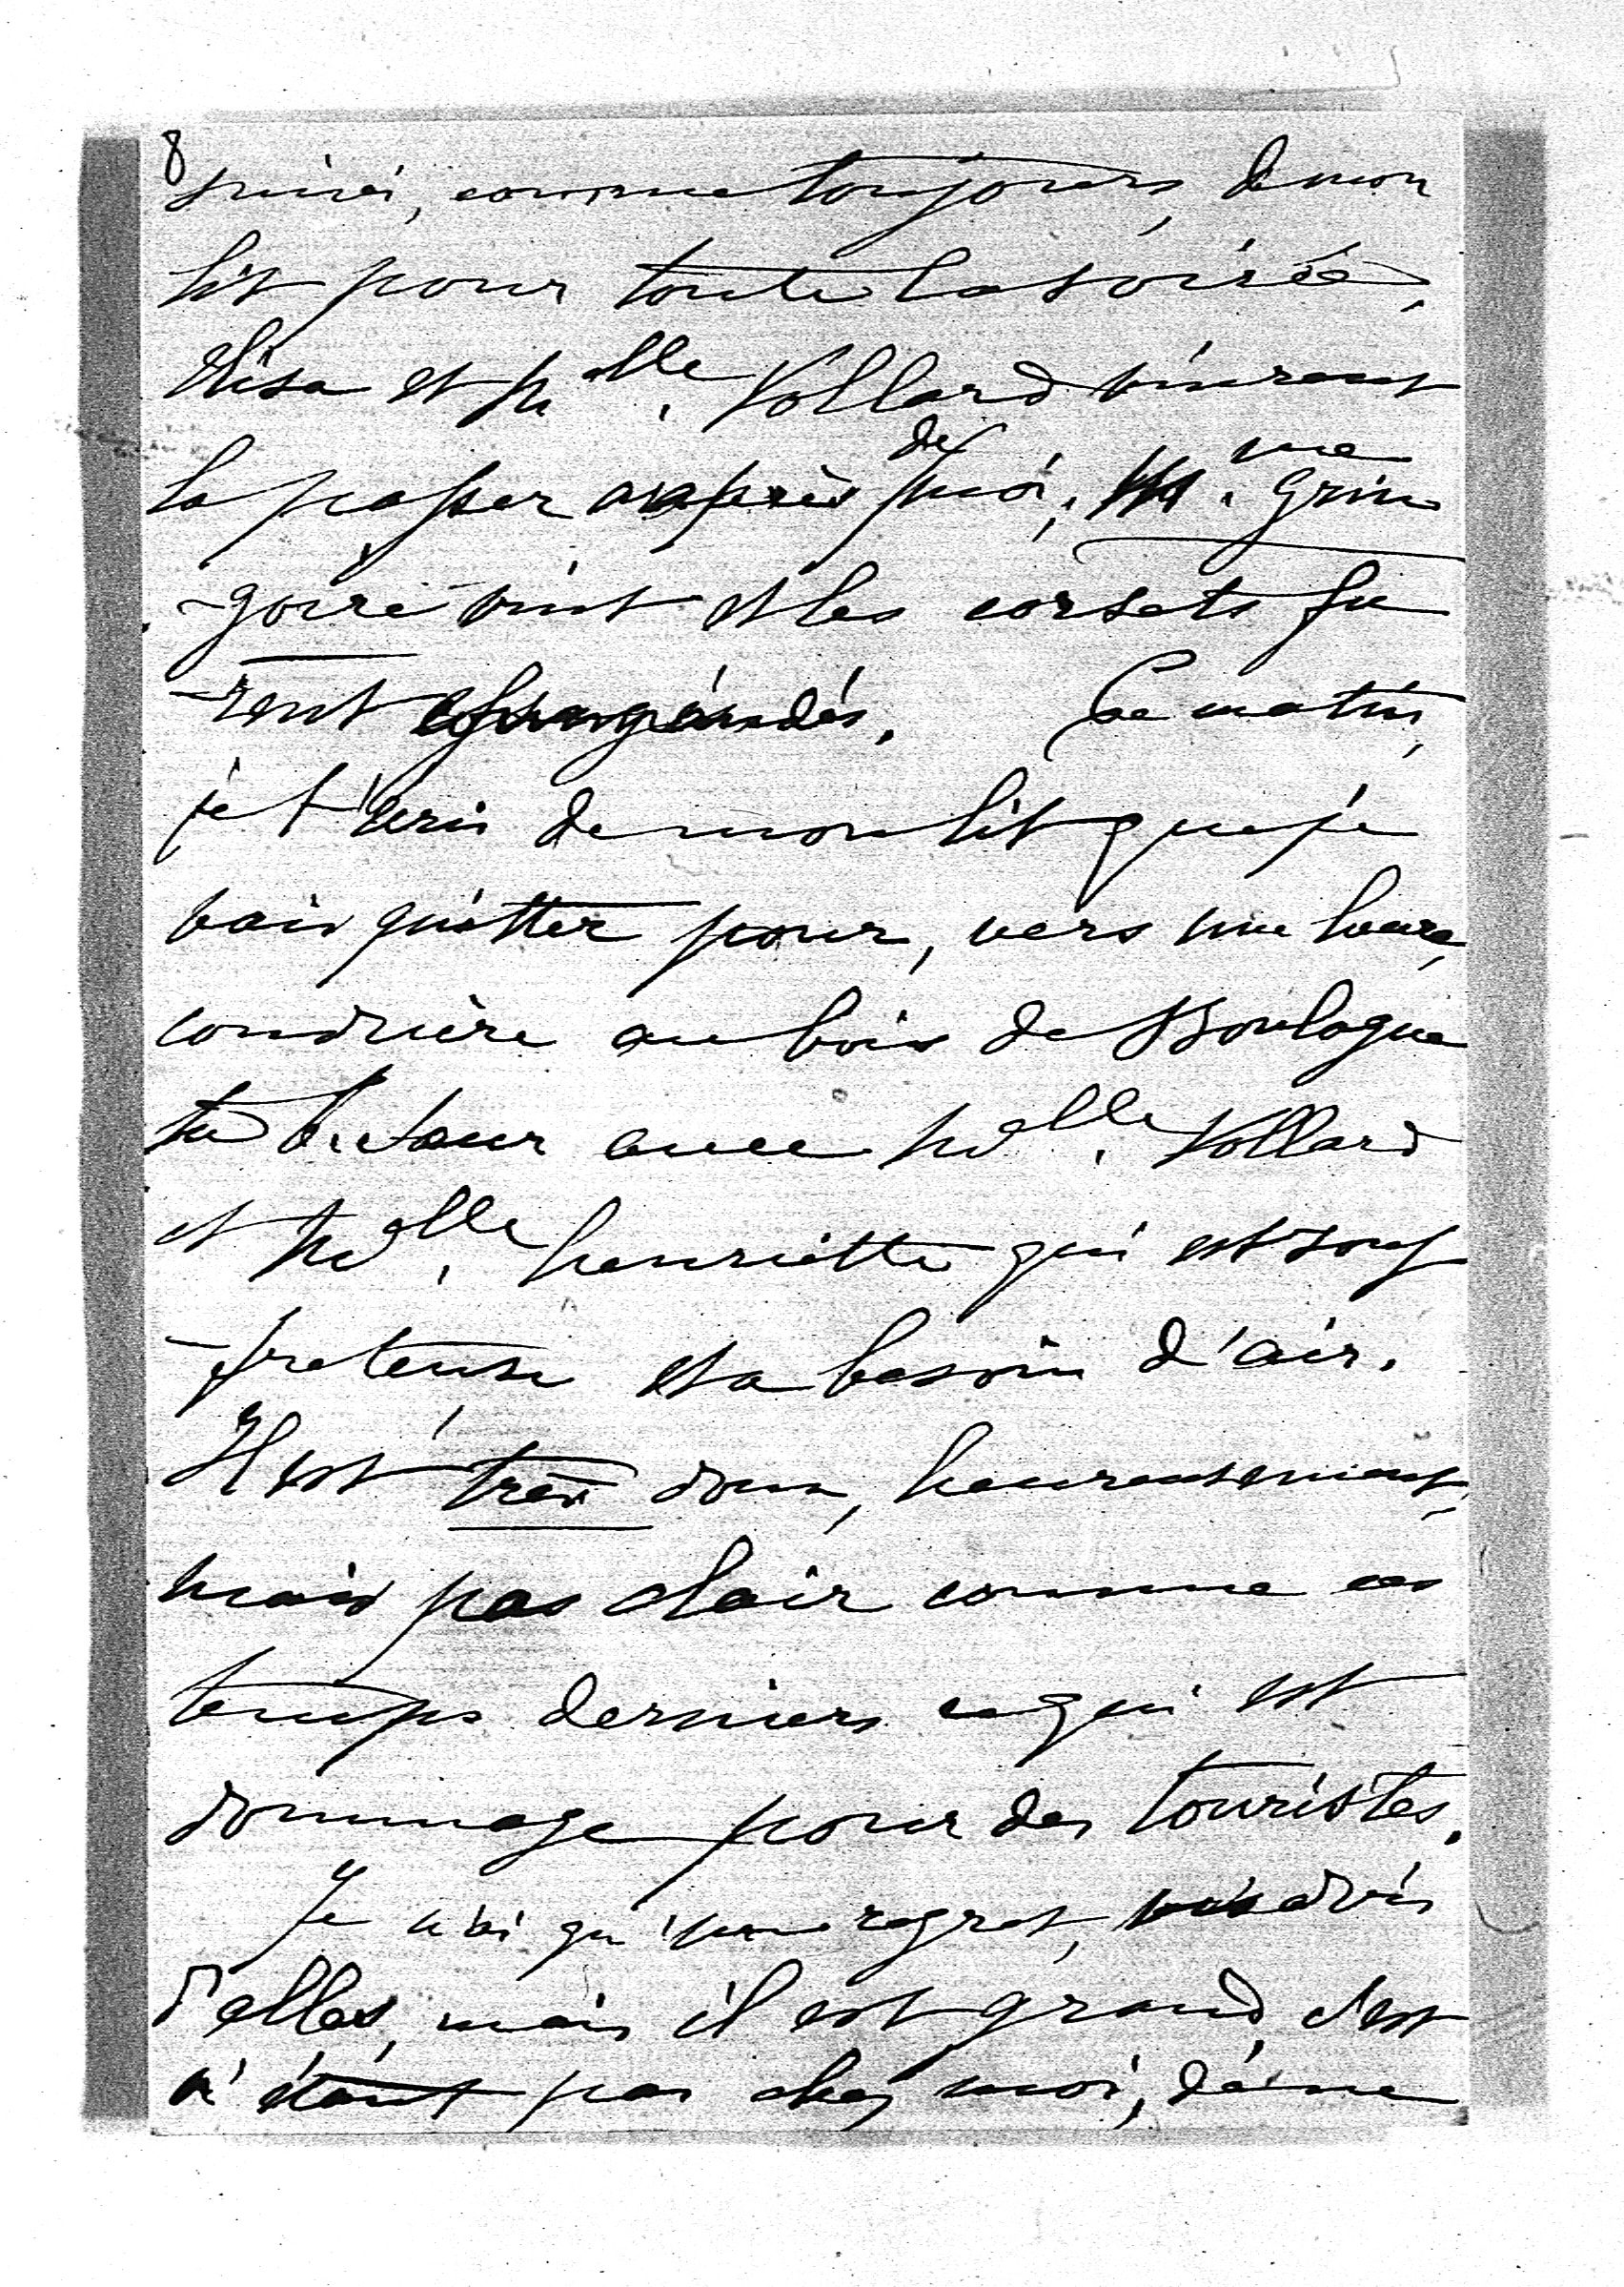 8
suivi, comme toujours, de mon
lit pour toute la soirée,
Élisa et Melle. Vollard vinrent
la passer auprès de moi; Mme. Grin
-goire vint et les corsets fu
-rent Ce matin,
je t'écris de mon lit que je
vais quitter pour, vers une heure,
conduire au bois de Boulogne
avec Melle. Vollard
et Melle. henriette qui est souf
-freteuse et a besoin d'air.
Il est très doux, heureusement,
mais pas clair comme ces
temps derniers ce qui est
dommage pour des touristes.
Je n'ai qu'un regret, vis à vis
d'elles, mais il est grand, c'est
n'étant pas chez moi, de ne